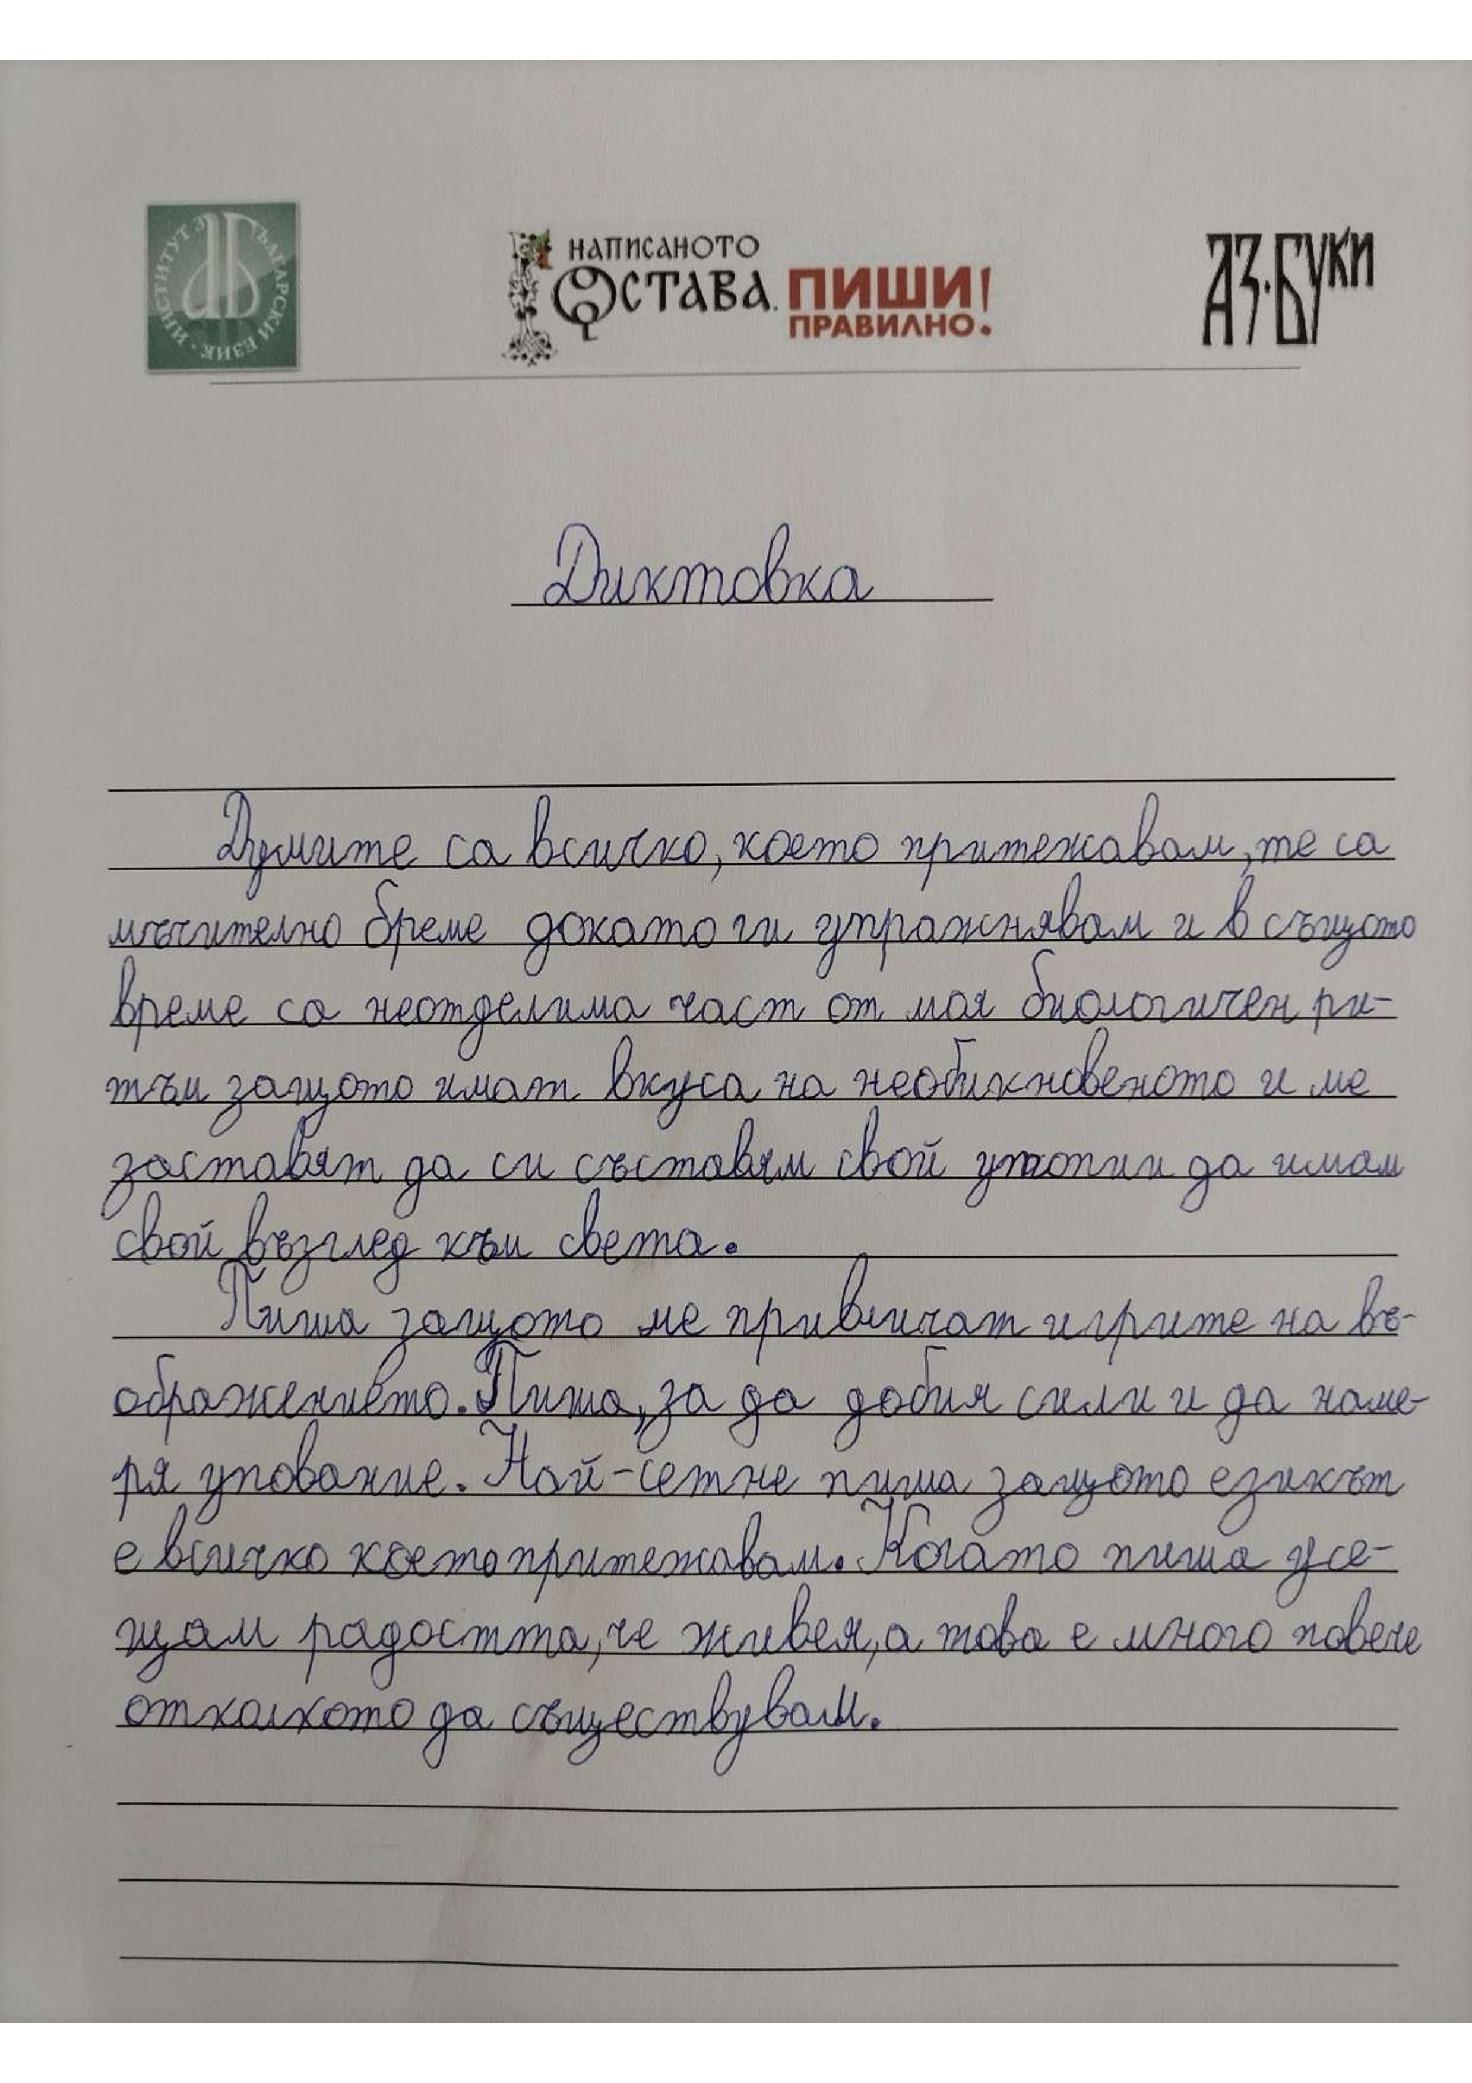 ИНСТИТУТ ЗА БЪЛГАРСКИ ЕЗИК
НАПИСАНОТО
ОСТАВА. ПИШИ!
ПРАВИЛНО.
АЗ·БУКИ
Диктовка
Думите са всичко, което притежавам, те са
мъчително бреме докато ги упражнявам и в същото
време са неотделима част от моя биологичен ри-
тъм защото имат вкуса на необикновеното и ме
заставят да си съставям свой утопии да имам
свой възглед към света.
Пиша защото ме привличат игрите на въ-
ображението. Пиша, за да добия сили и да наме-
ря упование. Най-сетне пиша защото езикът
е всичко което притежавам. Когато пиша усе-
щам радостта, че живея, а това е много повече
отколкото да съществувам.